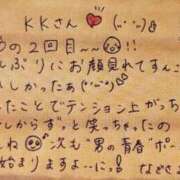 KKさん
の2回目~~
んぶりにお顔見れてすんご
しかったぁ
たことでテンション上がっち
しからずっと笑っちゃったの
しね 次も"男の青春"ボー
始まりますよーにっ! などさま